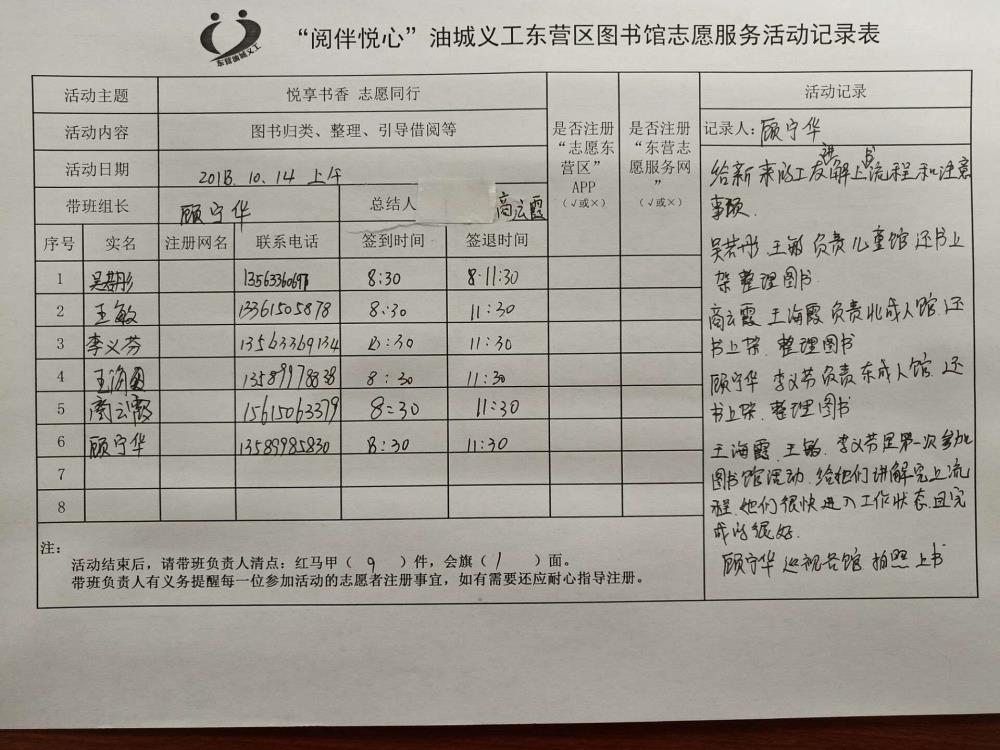 东营油城义工
“阅伴悦心”油城义工东营区图书馆志愿服务活动记录表
活动主题 悦享书香 志愿同行
活动内容 图书归类、整理、引导借阅等
活动日期 2018. 10. 14 上午
带班组长 顾宁华 总结人 商云霞
序号 实名 注册网名 联系电话 签到时间 签退时间
是否注册
“志愿东
营区”
APP
（√或×）
是否注册
“东营志
愿服务网
”
（√或×）
1 吴若彤 8:30 8:11:30
2 王敏 13361505878 8:30 11:30
3 李义芬 13563369134 8:30 11:30
4 王海霞 13589978838 8:30 11:30
5 商云霞 15615063379 8:30 11:30
6 顾宁华 13589985830 8:30 11:30
7
8
注：
活动结束后，请带班负责人清点：红马甲（ 9 ）件，会旗（ 1 ）面。
带班负责人有义务提醒每一位参加活动的志愿者注册事宜，如有需要还应耐心指导注册。
活动记录
记录人：顾宁华
给新来的工友讲解上书流程和注意
事项.
吴若彤 王敏 负责儿童馆 还书上
架 整理图书
商云霞 王海霞负责北成人馆.还
书上架. 整理图书
顾宁华 李义芬负责东成人馆. 还
书上架. 整理图书
王海霞. 王敏. 李义芬是第一次参加
图书馆活动. 给她们讲解完上流
程. 她们很快进入工作状态.且完
成的很好.
顾宁华 巡视各馆 拍照 上书